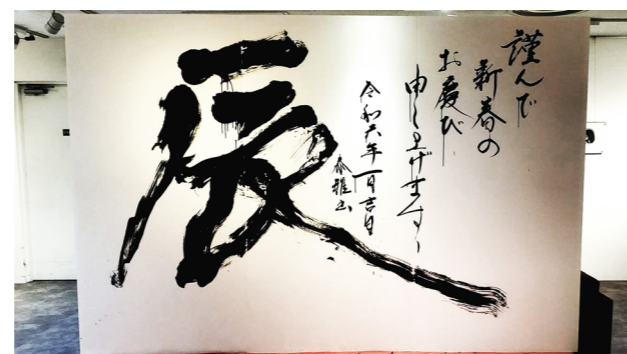 謹んで
新春の
お慶び
申し上げます
令和六年一月吉日
春雅
辰